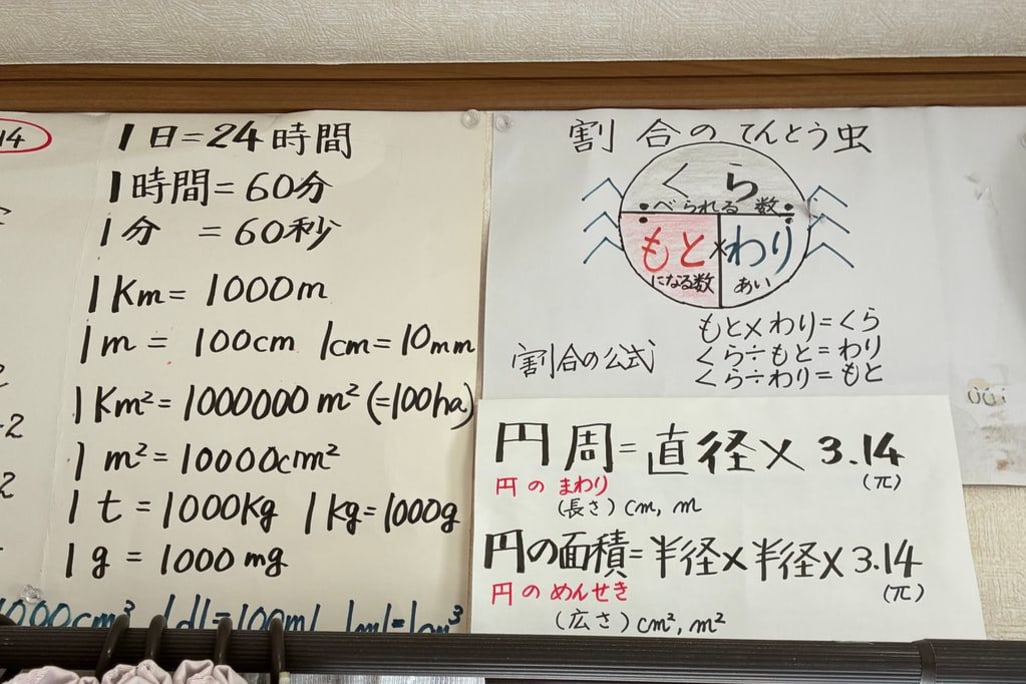 14
1日=24時間
1時間=60分
1分 =60秒
1Km=1000m
1m= 100cm 1cm=10mm
1Km²=1000000m²(=100ha)
1m²=10000cm²
1t=1000Kg 1kg=1000g
1g=1000mg
1000cm³ 1dl=100ml 1ml=1cm³
2
-2
2
割合のてんとう虫
くら
べられる数
もと×わり
になる数 あい
もと×わり=くら
割合の公式
くら÷もと=わり
くら÷わり=もと
円周=直径×3.14
円のまわり (π)
(長さ)cm, m
円の面積=半径×半径×3.14
円のめんせき (π)
(広さ)cm², m²